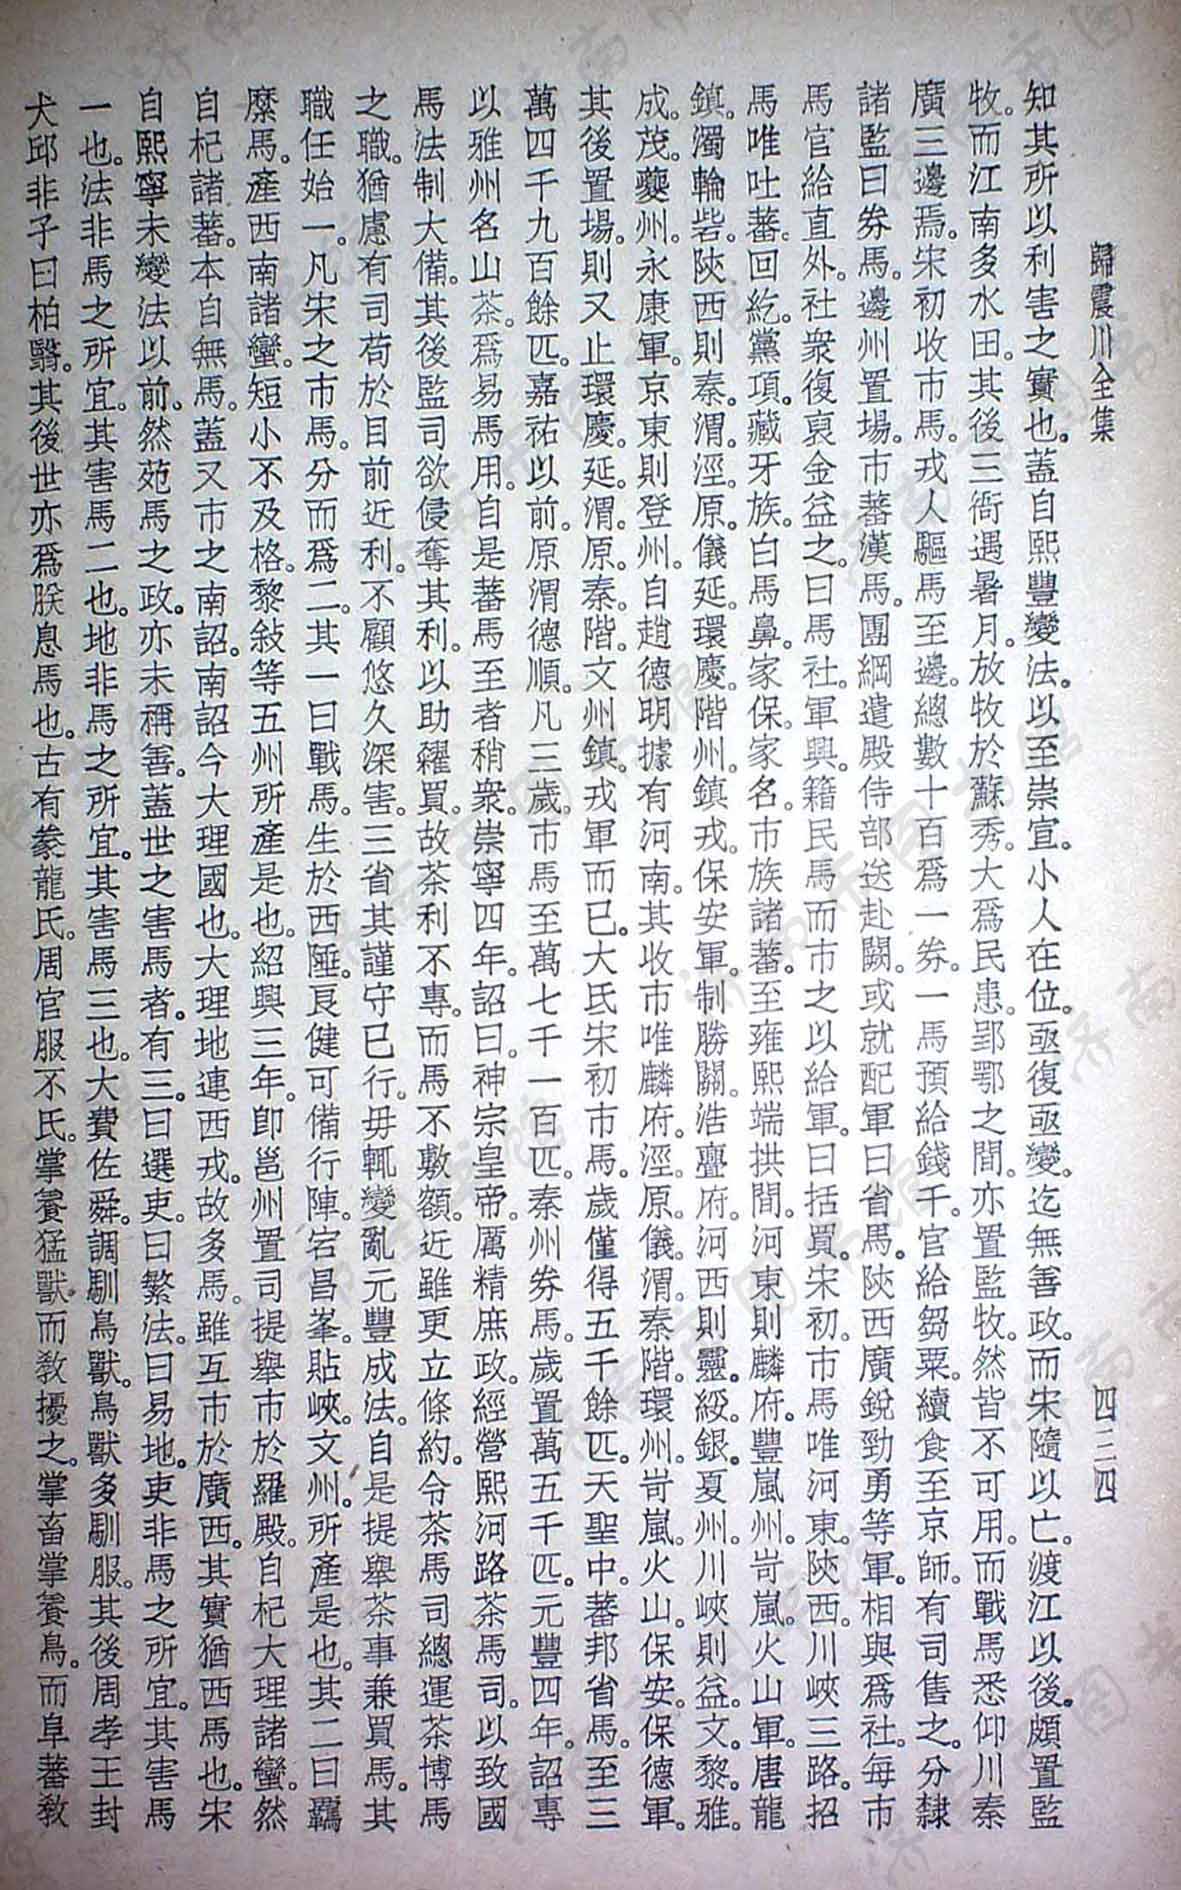 歸震川全集
四三四
知其所以利害之實也。蓋自熙豐變法。以至崇宣。小人在位。亟復亟變。迄無善政。而宋隨以亡。渡江以後。頗置監
牧。而江南多水田。其後三衙遇暑月。放牧於蘇秀。大爲民患。郢鄂之間。亦置監牧。然皆不可用。而戰馬悉仰川秦
廣三邊焉。宋初收市馬。戎人驅馬至邊。總數十百爲一券。一馬預給錢千。官給芻粟。續食至京師。有司售之。分隸
諸監曰券馬。邊州置場。市蕃漢馬。團綱遣殿侍部送赴闕。或就配軍曰省馬。陝西廣銳勁勇等軍。相與爲社。每市
馬官給直外。社衆復裒金益之。曰馬社。軍興。籍民馬而市之以給軍。曰括買。宋初。市馬唯河東。陝西。川峽三路。招
馬唯吐蕃。回紇。黨項。藏牙族。白馬鼻。家保。家名。市族諸蕃。至雍熙端拱間。河東則麟府。豐嵐州。岢嵐。火山軍。唐龍
鎮。濁輪砦。陝西則秦。渭。涇。原。儀。延。環。慶。階州。鎮戎。保安軍。制勝關。浩亹府。河西則靈。綏。銀。夏州。川峽則益。文。黎。雅。
成。茂。夔州。永康軍。京東則登州。自趙德明據有河南。其收市唯麟府。涇。原。儀。渭。秦。階。環州。岢嵐。火山。保安。保德軍。
其後置場。則又止環慶。延。渭。原。秦。階。文州。鎮戎軍而已。大氐宋初市馬。歲僅得五千餘匹。天聖中。蕃邦省馬。至三
萬四千九百餘匹。嘉祐以前。原渭德順。凡三歲市馬至萬七千一百匹。秦州券馬。歲置萬五千匹。元豐四年。詔專
以雅州名山茶。爲易馬用。自是蕃馬至者稍衆。崇寧四年。詔曰。神宗皇帝。厲精庶政。經營熙河路茶馬司。以致國
馬法制大備。其後監司欲侵奪其利。以助糴買。故茶利不專。而馬不敷額。近雖更立條約。令茶馬司總運茶博馬
之職。猶慮有司苟於目前近利。不顧悠久深害。三省其謹守已行。毋輒變亂元豐成法。自是提舉茶事兼買馬。其
職任始一。凡宋之市馬。分而爲二。其一曰戰馬。生於西陲。良健可備行陣。宕昌。峯。貼峽。文州。所產是也。其二曰羈
縻馬。產西南諸蠻。短小不及格。黎敍等五州所產是也。紹興三年。卽邕州置司提舉市於羅殿。自杞大理諸蠻。然
自杞諸蕃。本自無馬。蓋又市之南詔。南詔今大理國也。大理地連西戎。故多馬。雖互市於廣西。其實猶西馬也。宋
自熙寧未變法以前。然苑馬之政。亦未稱善。蓋世之害馬者。有三。曰選吏。曰繁法。曰易地。吏非馬之所宜。其害馬
一也。法非馬之所宜。其害馬二也。地非馬之所宜。其害馬三也。大費佐舜。調馴鳥獸。鳥獸多馴服。其後周孝王封
犬邱非子曰柏翳。其後世亦爲朕息馬也。古有豢龍氏。周官服不氏。掌養猛獸而敎擾之。掌畜掌養鳥。而阜蕃敎